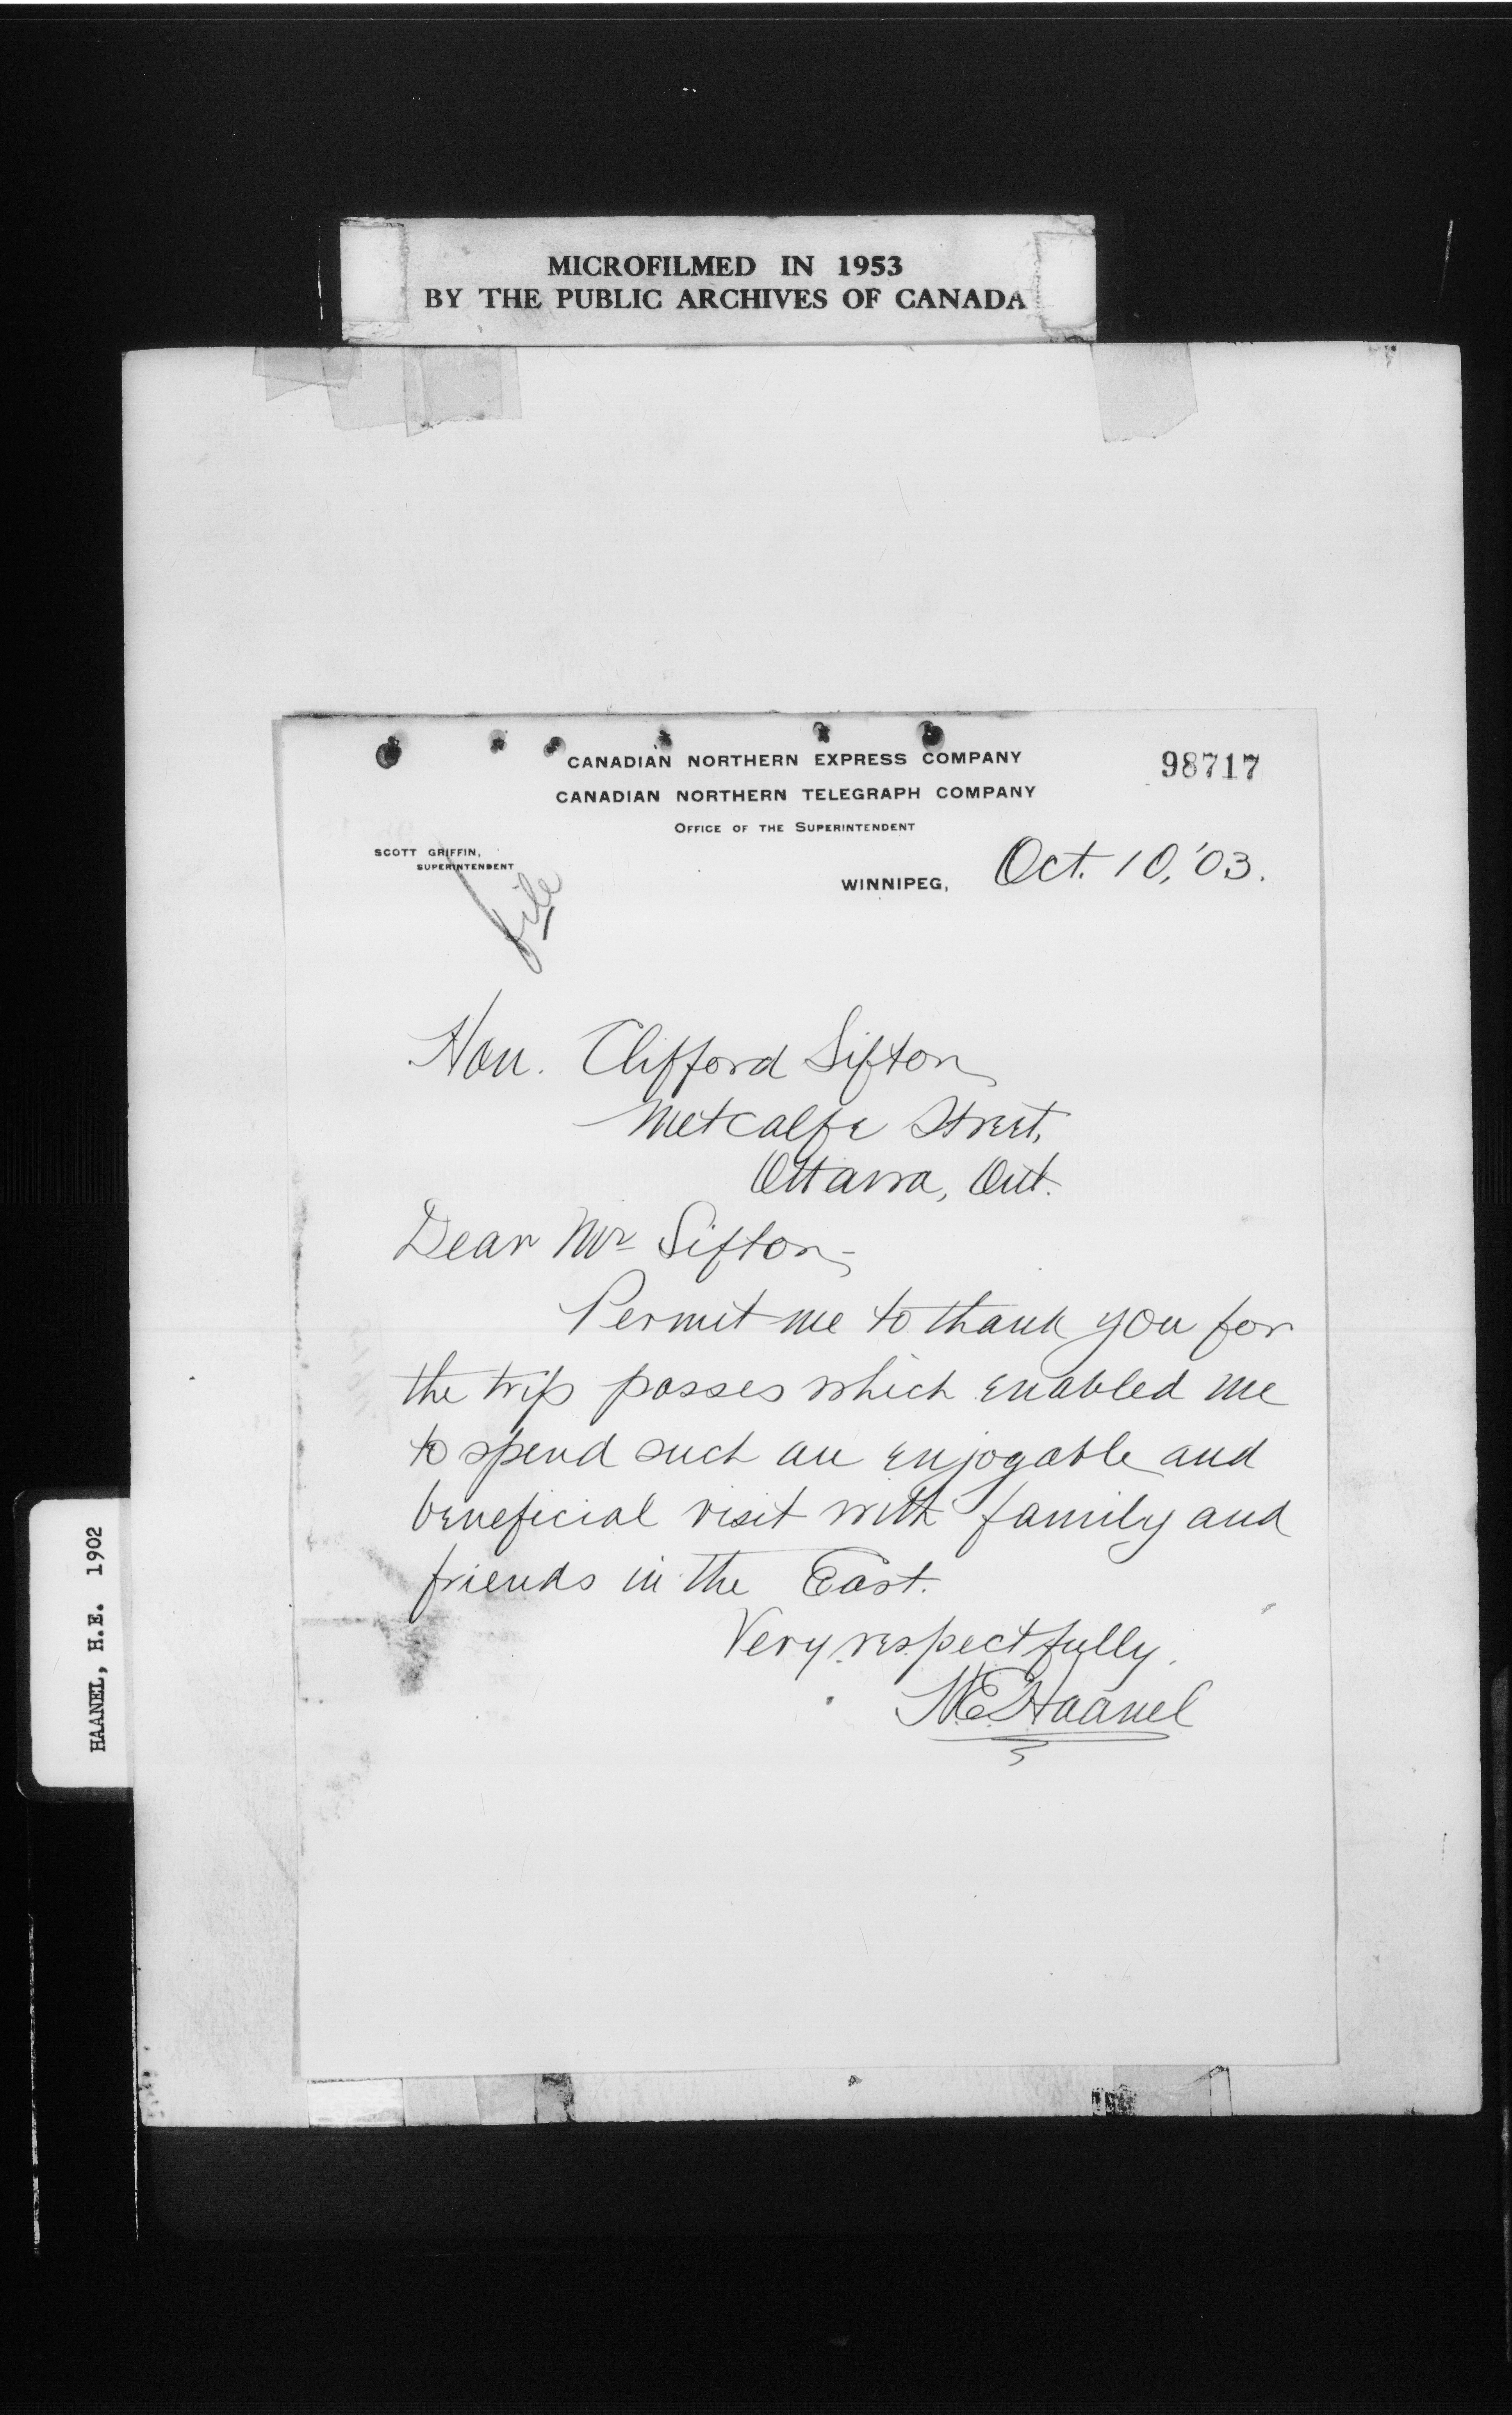 MICROFILMED IN 1953
BY THE PUBLIC ARCHIVES OF CANADA
CANADIAN NORTHERN EXPRESS COMPANY
98717
CANADIAN NORTHERN TELEGRAPH COMPANY
OFFICE OF THE SUPERINTENDENT
SCOTT GRIFFIN,
SUPERINTENDENT
WINNIPEG, Oct. 10, '03.
file
Hon. Clifford Sifton
Metcalfe Street,
Ottawa, Ont.
Dear Mr Sifton-
Permit me to thank you for
the trip passes which enabled me
to spend such an enjoyable and
beneficial visit with family and
friends in the East.
Very respectfully,
H.E. Haanel
HAANEL, H.E. 1902